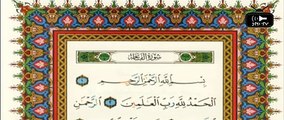 سُورَةُ الفَاتِحَةِ
بِسْمِ اللَّهِ الرَّحْمَٰنِ الرَّحِيمِ ١
الْحَمْدُ لِلَّهِ رَبِّ الْعَالَمِينَ ٢ الرَّحْمَٰنِ